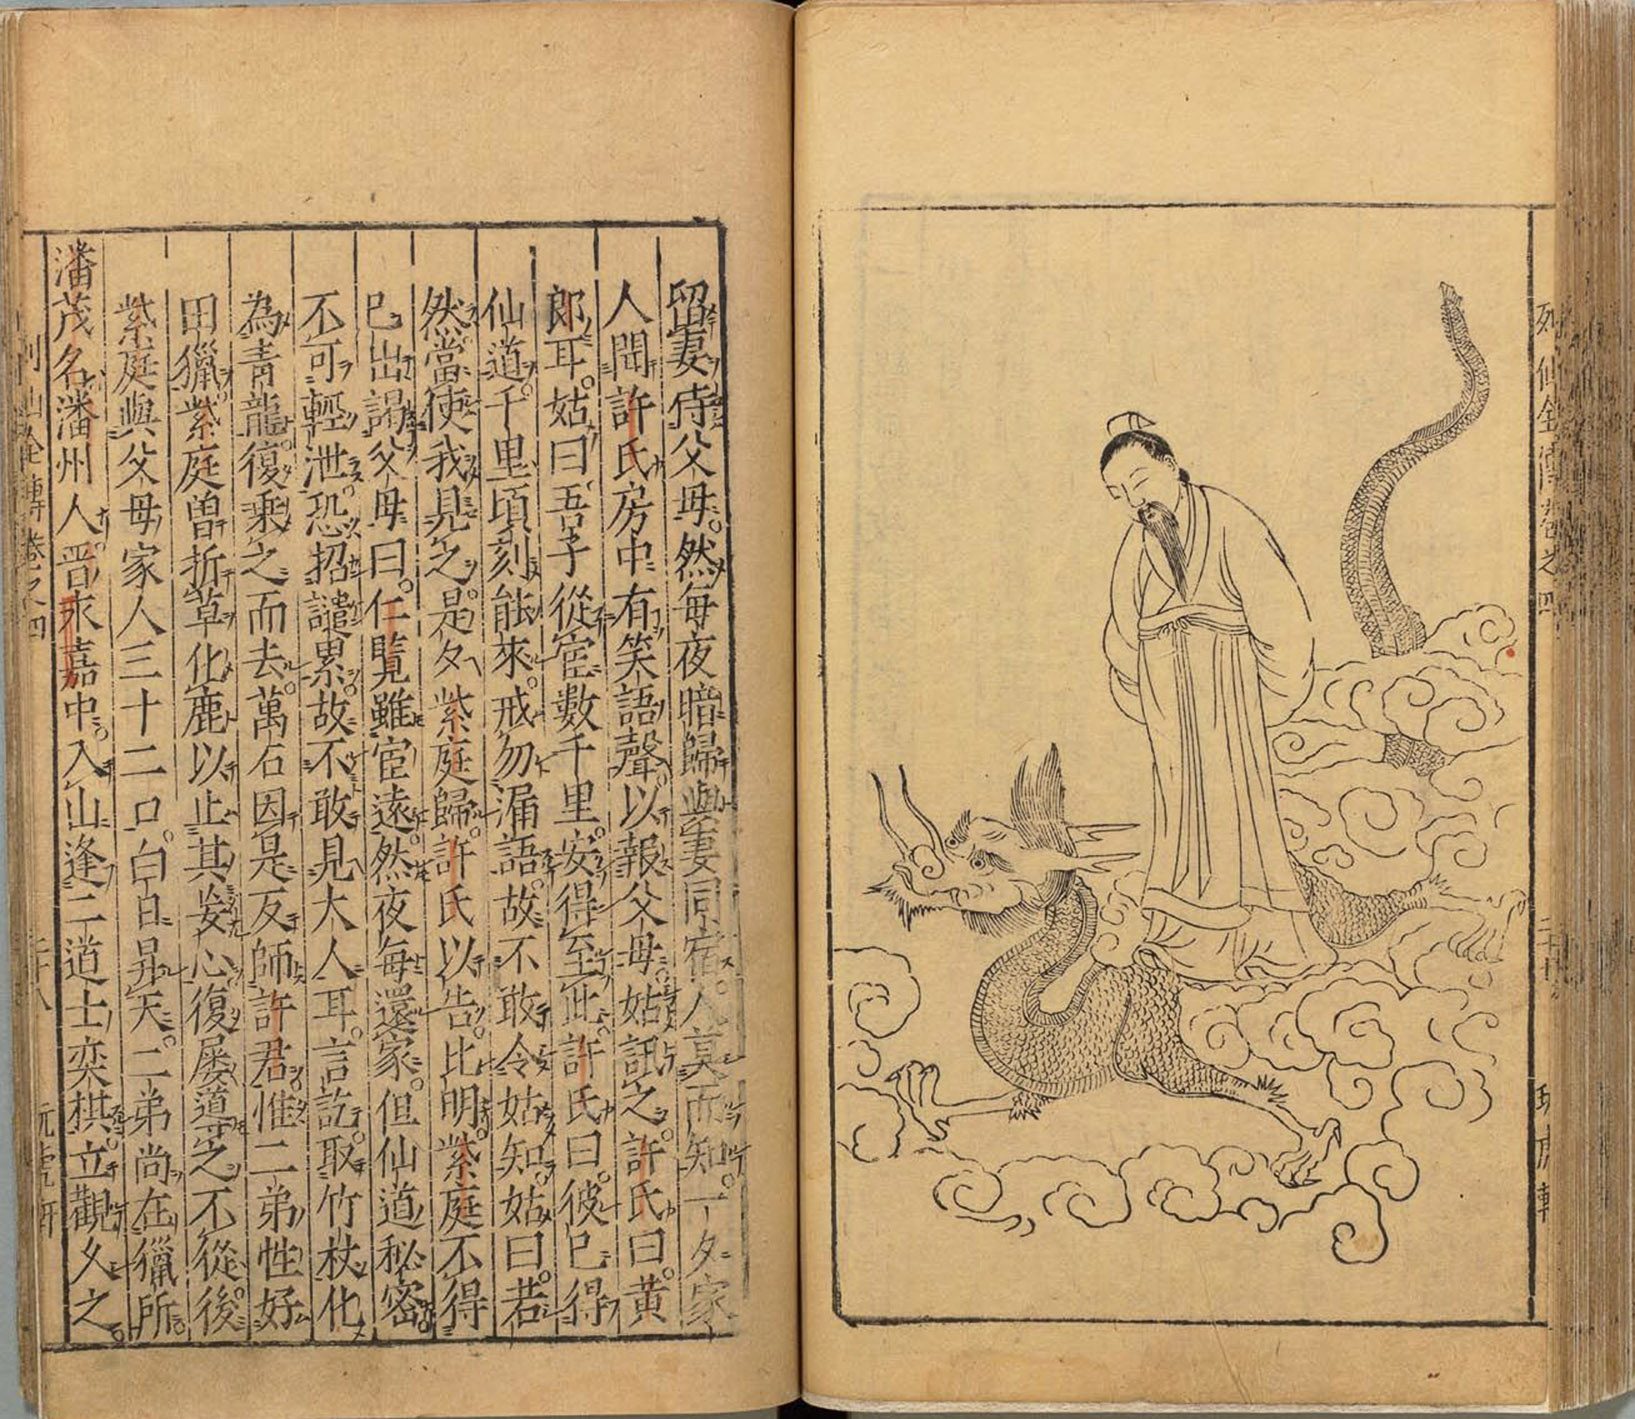 列仙全傳卷之四 二十七 玩虎軒
留妻侍父母。然每夜暗歸與妻同宿。人莫而知。一夕家
人聞許氏房中有笑語聲。以報父母。姑訊之。許氏曰。黃
郎耳。姑曰。吾子從宦數千里。安得至此。許氏曰。彼已得
仙道。千里頃刻能來。戒勿漏語。故不敢令姑知。姑曰。若
然。當使我見之。是夕紫庭歸。許氏以告。比明。紫庭不得
已出謁父母曰。仁覽雖宦遠。然夜每還家。但仙道秘密。
不可輕泄。恐招譴累。故不敢見大人耳。言訖。取竹杖化
為青龍。復乘之而去。萬石因是反師許君。惟二弟性好
田獵。紫庭曾折草化鹿以止其妄心。復屢道之不從。後
紫庭與父母家人三十二口。白日昇天。二弟尚在獵所。
潘茂名潘州人。晋永嘉中。入山逢二道士奕棋。立觀久之。
列仙全傳卷之四 二十八 玩虎軒